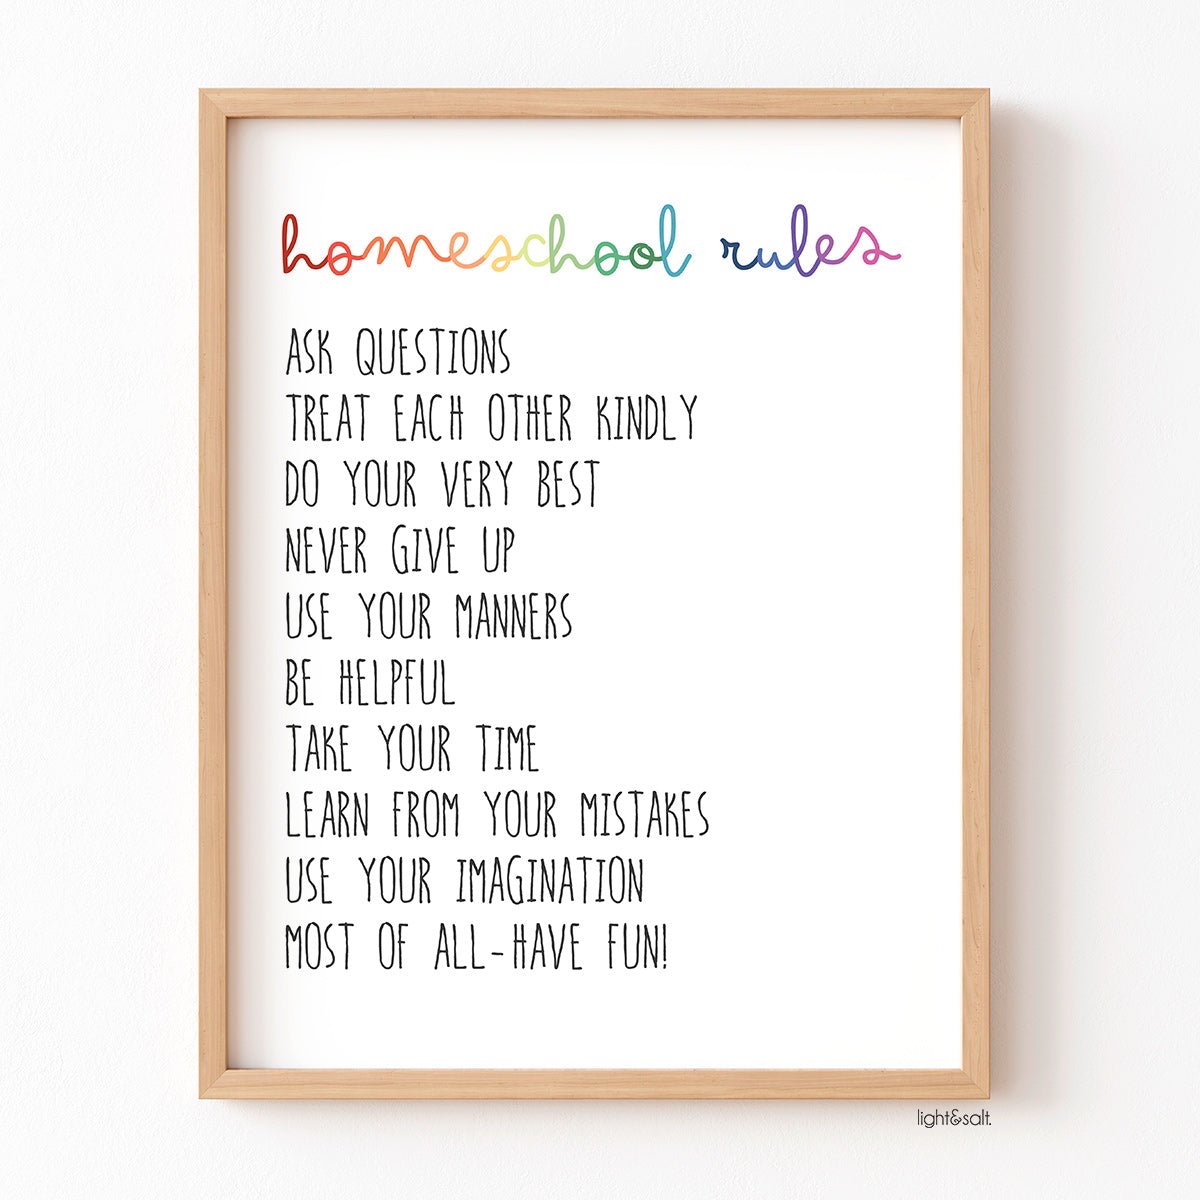 homeschool rules
ASK QUESTIONS
TREAT EACH OTHER KINDLY
DO YOUR VERY BEST
NEVER GIVE UP
USE YOUR MANNERS
BE HELPFUL
TAKE YOUR TIME
LEARN FROM YOUR MISTAKES
USE YOUR IMAGINATION
MOST OF ALL-HAVE FUN!
light&salt.